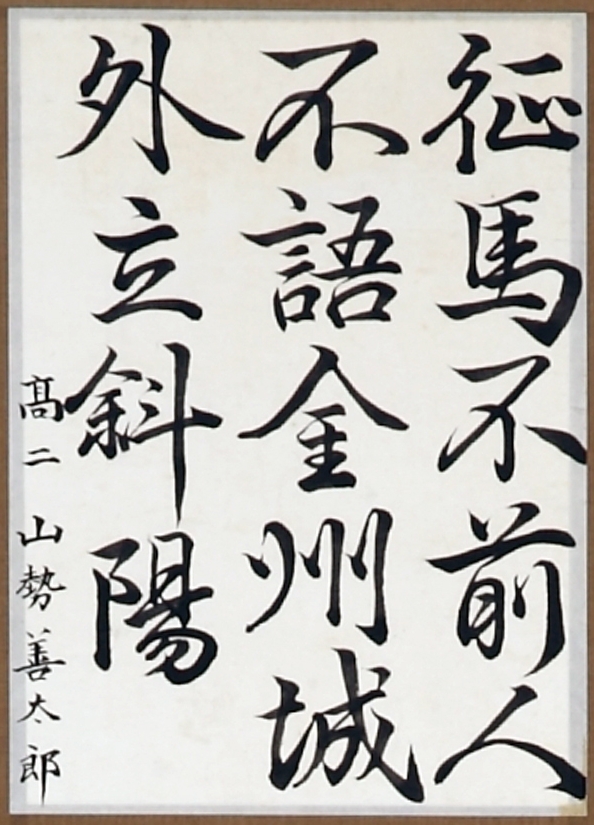 征馬不前人
不語金州城
外立斜陽
髙二 山勢善太郎